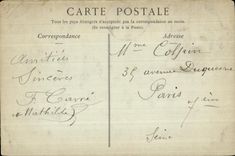 CARTE POSTALE
Tous les pays étrangers n'acceptent pas la correspondance au recto.
(Se renseigner à la Poste).
Correspondance
Amitiés
Sincères
F. Carré
Mathilde
Adresse
Mme
35 avenue Duquesne
Paris
7èm
Seine